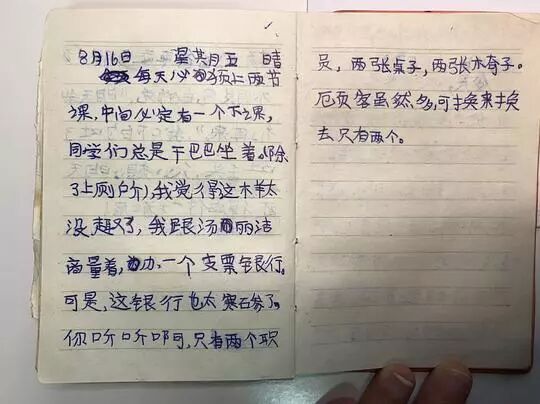 8月16日 星其月五 晴
每天必须上两节
课,中间必定有一个下课,
同学们总是干巴巴坐着。(除
了上厕所),我觉得这木羊太
没趣了,我跟汤丽洁
商量着,办一个支票银行。
可是,这银行也太寒石参了。
你听听啊,只有两个职
员,两张桌子,两张木奇子。
顾客虽然多,可扌换来扌换
去只有两个。